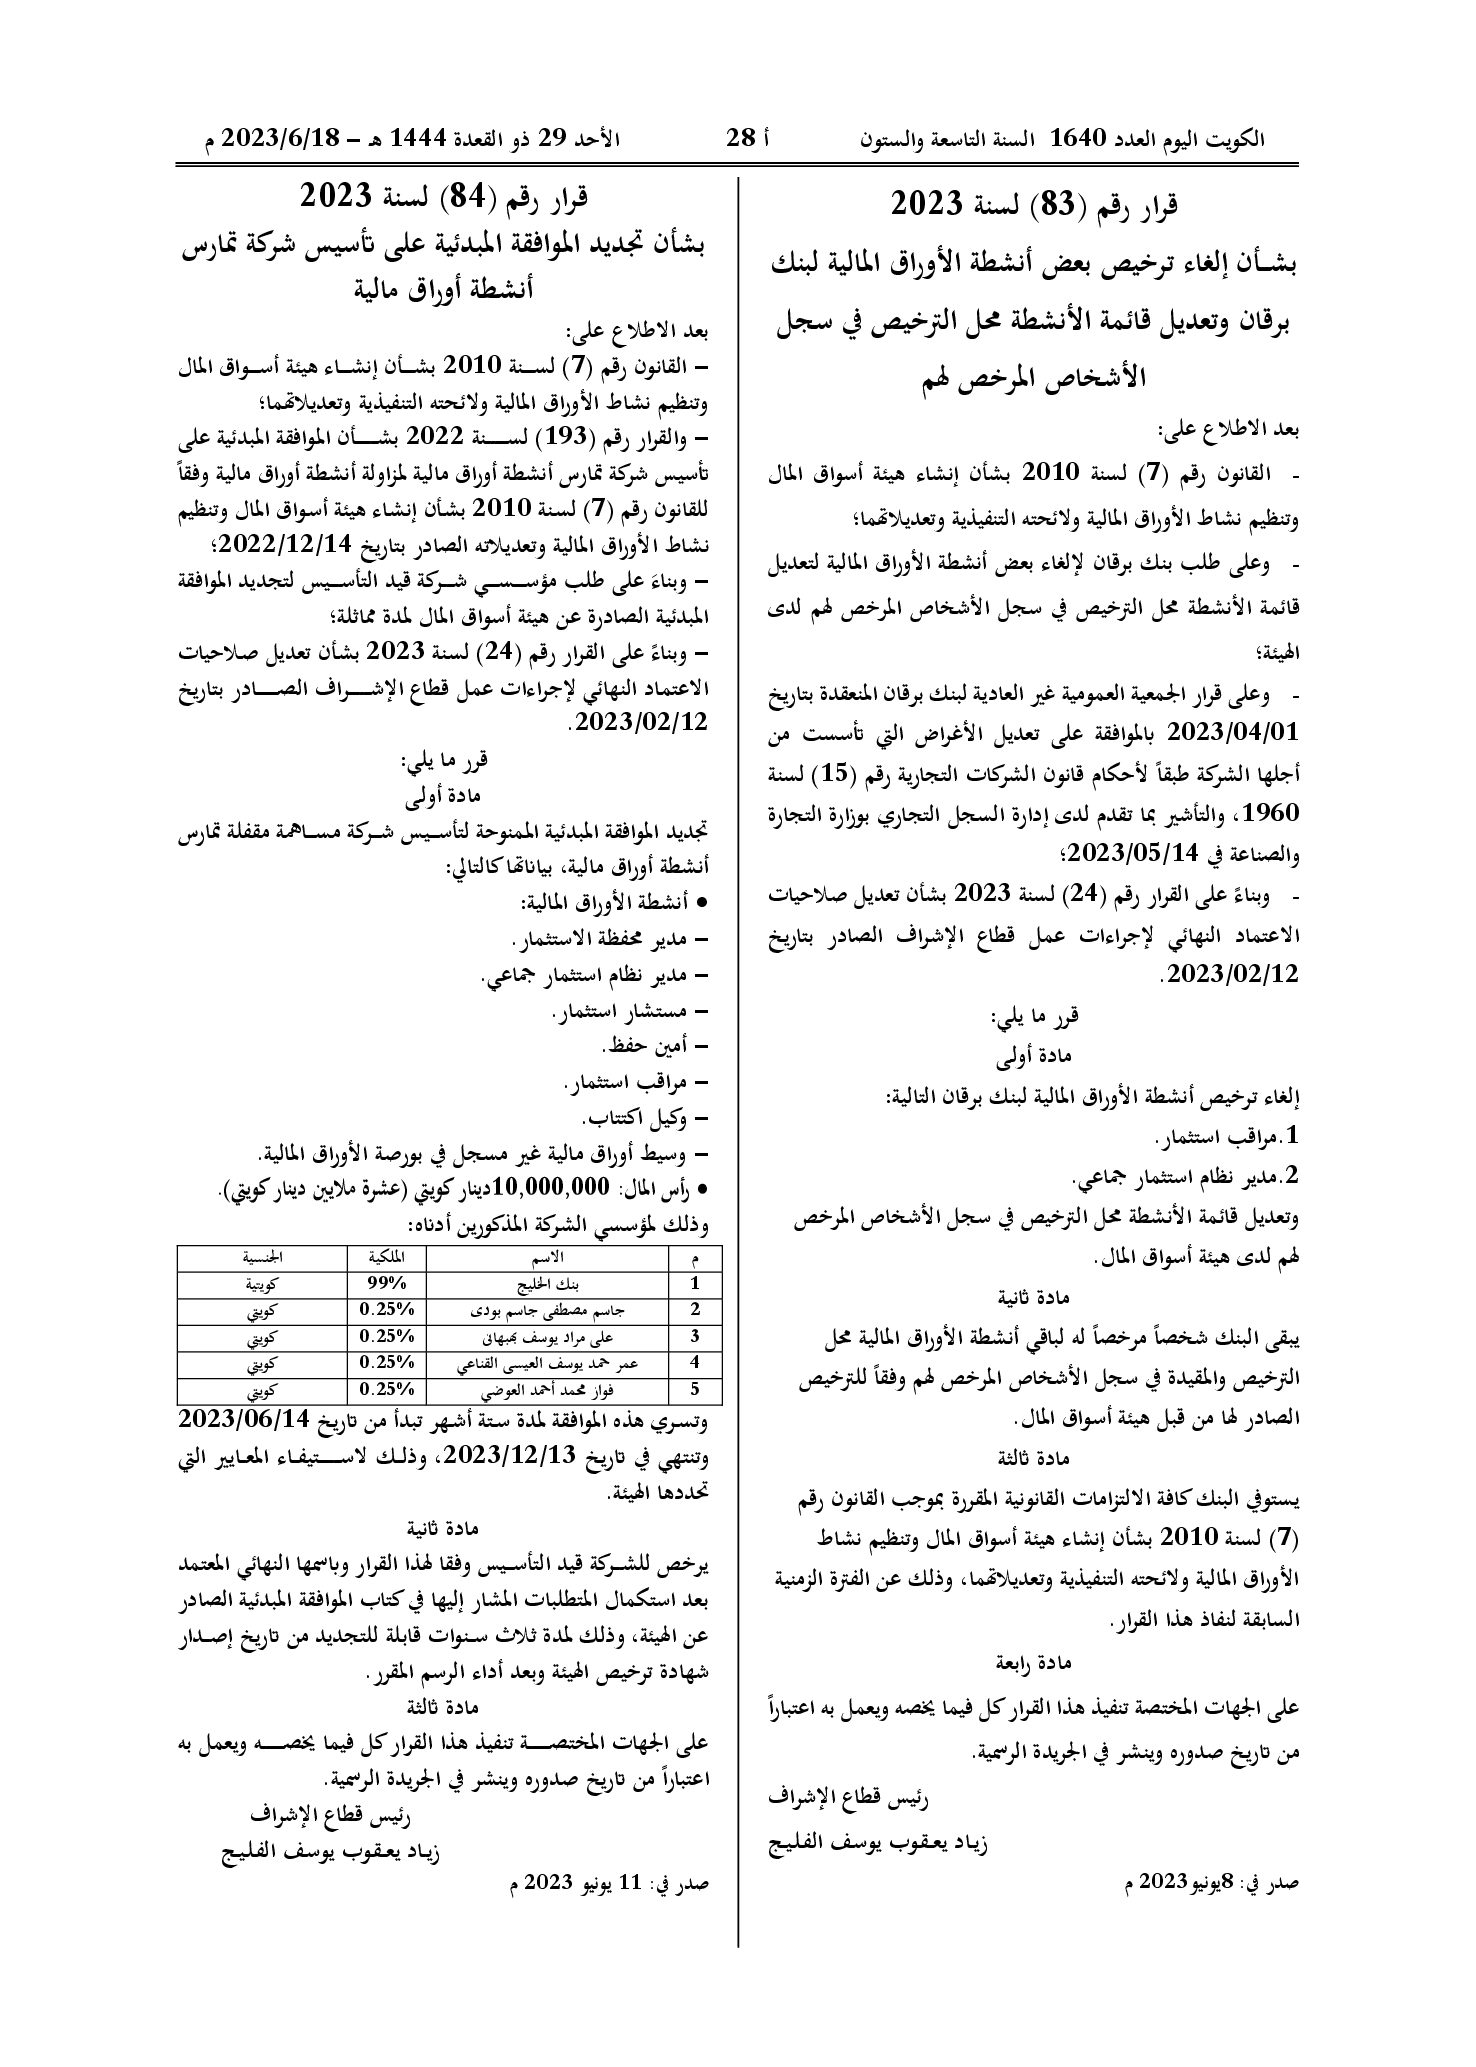 الكويت اليوم العدد 1640 السنة التاسعة والستون
أ 28
الأحد 29 ذو القعدة 1444 هـ – 2023/6/18 م
قرار رقم (83) لسنة 2023
بشأن إلغاء ترخيص بعض أنشطة الأوراق المالية لبنك
برقان وتعديل قائمة الأنشطة محل الترخيص في سجل
الأشخاص المرخص لهم
بعد الاطلاع على:
- القانون رقم (7) لسنة 2010 بشأن إنشاء هيئة أسواق المال
وتنظيم نشاط الأوراق المالية ولائحته التنفيذية وتعديلاتهما؛
- وعلى طلب بنك برقان لإلغاء بعض أنشطة الأوراق المالية لتعديل
قائمة الأنشطة محل الترخيص في سجل الأشخاص المرخص لهم لدى
الهيئة؛
- وعلى قرار الجمعية العمومية غير العادية لبنك برقان المنعقدة بتاريخ
2023/04/01 بالموافقة على تعديل الأغراض التي تأسست من
أجلها الشركة طبقاً لأحكام قانون الشركات التجارية رقم (15) لسنة
1960، والتأشير بما تقدم لدى إدارة السجل التجاري بوزارة التجارة
والصناعة في 2023/05/14؛
- وبناءً على القرار رقم (24) لسنة 2023 بشأن تعديل صلاحيات
الاعتماد النهائي لإجراءات عمل قطاع الإشراف الصادر بتاريخ
2023/02/12.
قرر ما يلي:
مادة أولى
إلغاء ترخيص أنشطة الأوراق المالية لبنك برقان التالية:
1.مراقب استثمار.
2.مدير نظام استثمار جماعي.
وتعديل قائمة الأنشطة محل الترخيص في سجل الأشخاص المرخص
لهم لدى هيئة أسواق المال.
مادة ثانية
يبقى البنك شخصاً مرخصاً له لباقي أنشطة الأوراق المالية محل
الترخيص والمقيدة في سجل الأشخاص المرخص لهم وفقاً للترخيص
الصادر لها من قبل هيئة أسواق المال.
مادة ثالثة
يستوفي البنك كافة الالتزامات القانونية المقررة بموجب القانون رقم
(7) لسنة 2010 بشأن إنشاء هيئة أسواق المال وتنظيم نشاط
الأوراق المالية ولائحته التنفيذية وتعديلاتهما، وذلك عن الفترة الزمنية
السابقة لنفاذ هذا القرار.
مادة رابعة
على الجهات المختصة تنفيذ هذا القرار كل فيما يخصه ويعمل به اعتباراً
من تاريخ صدوره وينشر في الجريدة الرسمية.
رئيس قطاع الإشراف
زياد يعقوب يوسف الفليج
صدر في: 8يونيو2023 م
قرار رقم (84) لسنة 2023
بشأن تجديد الموافقة المبدئية على تأسيس شركة تمارس
أنشطة أوراق مالية
بعد الاطلاع على:
– القانون رقم (7) لسنة 2010 بشأن إنشاء هيئة أسواق المال
وتنظيم نشاط الأوراق المالية ولائحته التنفيذية وتعديلاتهما؛
– والقرار رقم (193) لسنة 2022 بشأن الموافقة المبدئية على
تأسيس شركة تمارس أنشطة أوراق مالية لمزاولة أنشطة أوراق مالية وفقاً
للقانون رقم (7) لسنة 2010 بشأن إنشاء هيئة أسواق المال وتنظيم
نشاط الأوراق المالية وتعديلاته الصادر بتاريخ 2022/12/14؛
– وبناءَ على طلب مؤسسي شركة قيد التأسيس لتجديد الموافقة
المبدئية الصادرة عن هيئة أسواق المال لمدة مماثلة؛
– وبناءً على القرار رقم (24) لسنة 2023 بشأن تعديل صلاحيات
الاعتماد النهائي لإجراءات عمل قطاع الإشراف الصادر بتاريخ
2023/02/12.
قرر ما يلي:
مادة أولى
تجديد الموافقة المبدئية الممنوحة لتأسيس شركة مساهمة مقفلة تمارس
أنشطة أوراق مالية، بياناتها كالتالي:
● أنشطة الأوراق المالية:
– مدير محفظة الاستثمار.
– مدير نظام استثمار جماعي.
– مستشار استثمار.
– أمين حفظ.
– مراقب استثمار.
– وكيل اكتتاب.
– وسيط أوراق مالية غير مسجل في بورصة الأوراق المالية.
● رأس المال: 10,000,000دينار كويتي (عشرة ملايين دينار كويتي).
وذلك لمؤسسي الشركة المذكورين أدناه:
م الاسم الملكية الجنسية
1 بنك الخليج 99% كويتية
2 جاسم مصطفى جاسم بودى 0.25% كويتي
3 على مراد يوسف بهبهانى 0.25% كويتي
4 عمر حمد يوسف العيسى القناعي 0.25% كويتي
5 فواز محمد أحمد العوضي 0.25% كويتي
وتسري هذه الموافقة لمدة ستة أشهر تبدأ من تاريخ 2023/06/14
وتنتهي في تاريخ 2023/12/13، وذلك لاستيفاء المعايير التي
تحددها الهيئة.
مادة ثانية
يرخص للشركة قيد التأسيس وفقا لهذا القرار وباسمها النهائي المعتمد
بعد استكمال المتطلبات المشار إليها في كتاب الموافقة المبدئية الصادر
عن الهيئة، وذلك لمدة ثلاث سنوات قابلة للتجديد من تاريخ إصدار
شهادة ترخيص الهيئة وبعد أداء الرسم المقرر.
مادة ثالثة
على الجهات المختصة تنفيذ هذا القرار كل فيما يخصه ويعمل به
اعتباراً من تاريخ صدوره وينشر في الجريدة الرسمية.
رئيس قطاع الإشراف
زياد يعقوب يوسف الفليج
صدر في: 11 يونيو 2023 م